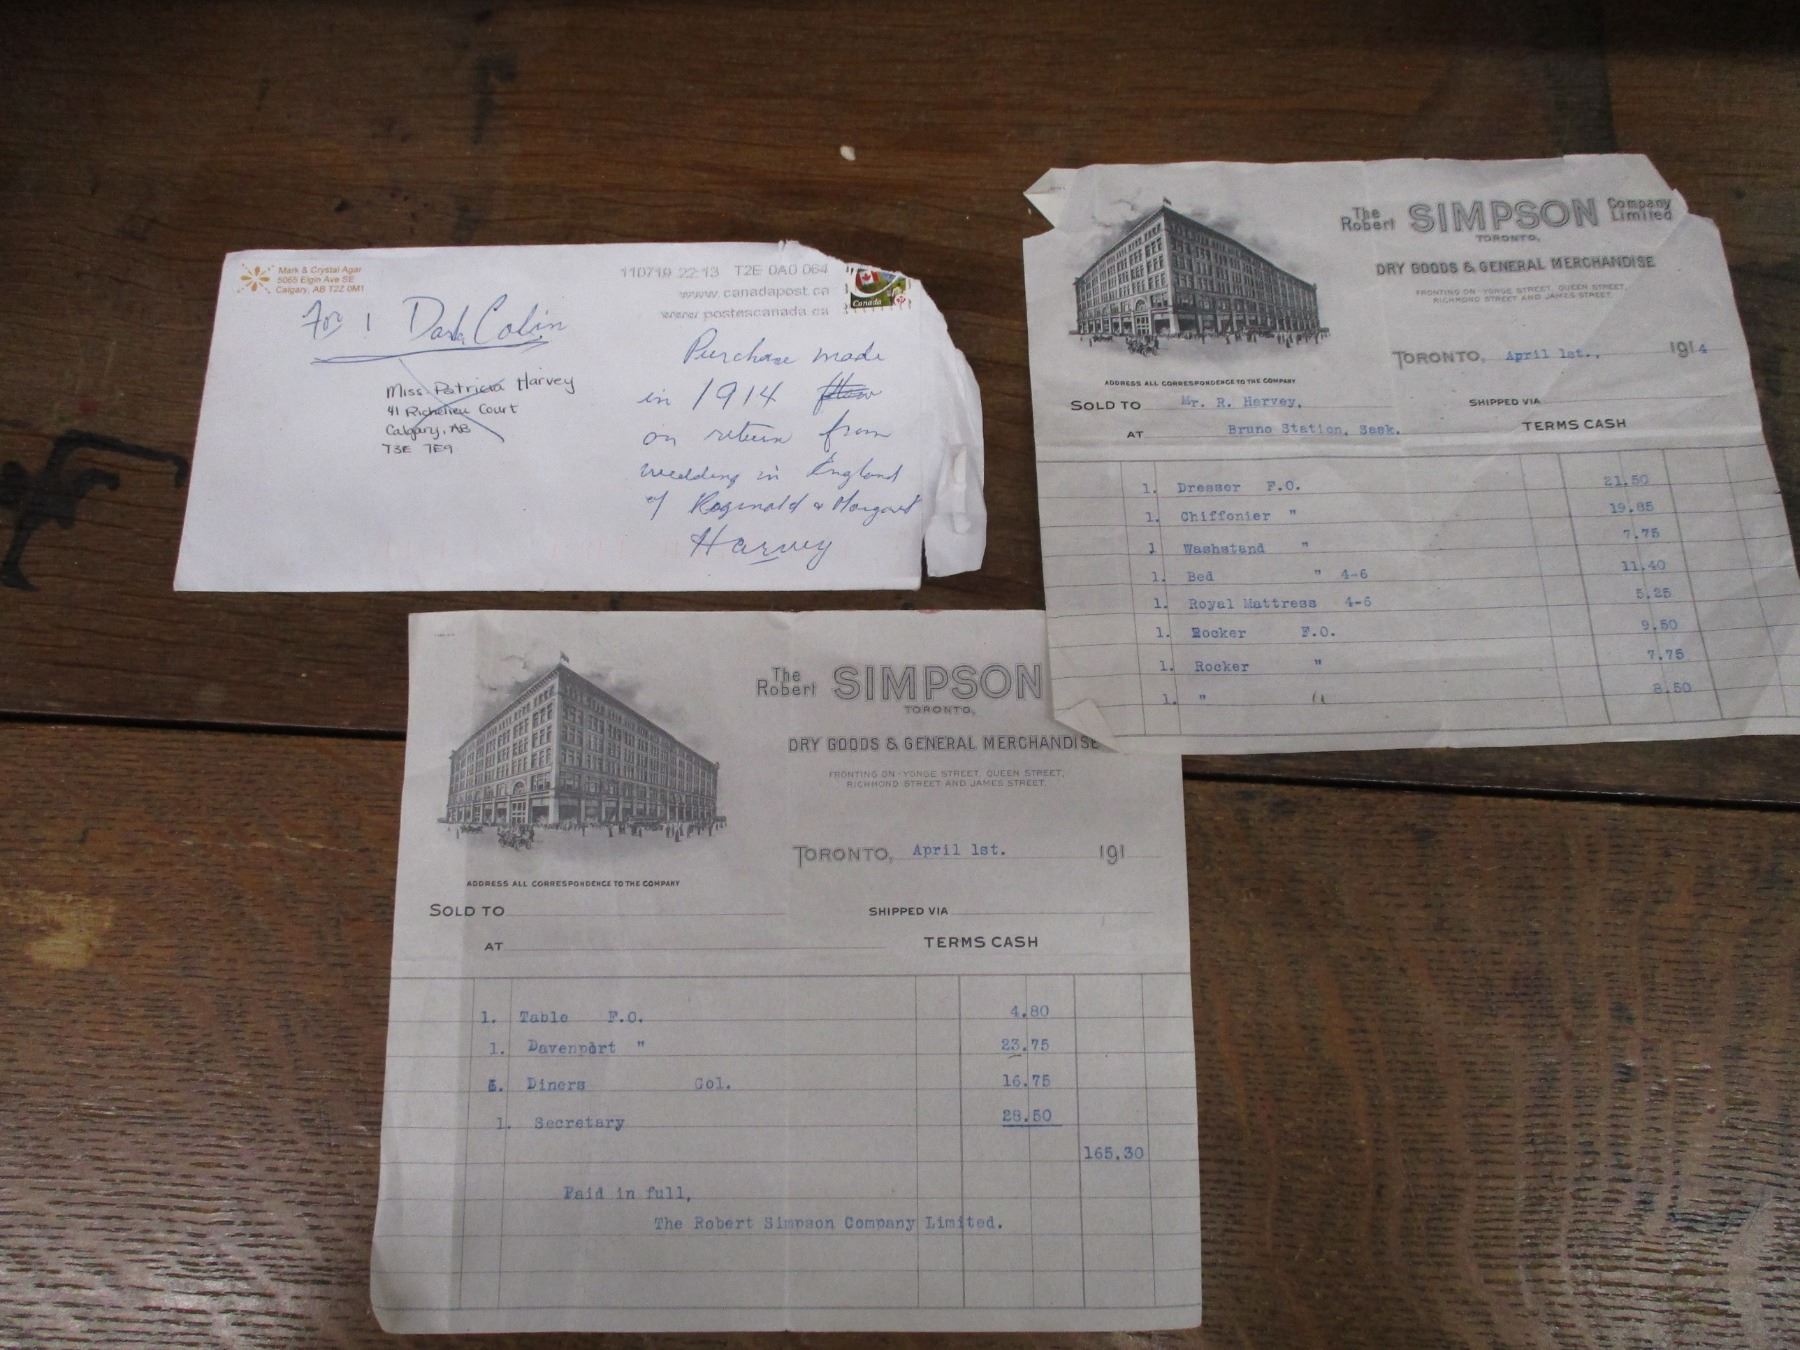 Mark & Crystal Agar
5065 Elgin Ave SE
Calgary, AB T2Z 0M1
110719 22:13 T2E 0A0 064
www.canadapost.ca
www.postescanada.ca
Canada
For: Dark Colin
Miss. Patricia Harvey
41 Richelieu Court
Calgary, AB
T3E 7E9
Purchase made
in 1914
on return from
wedding in England
of Reginald & Margaret
Harvey
The Robert SIMPSON Company Limited
TORONTO,
DRY GOODS & GENERAL MERCHANDISE
FRONTING ON YONGE STREET, QUEEN STREET,
RICHMOND STREET AND JAMES STREET.
TORONTO, April 1st., 1914
ADDRESS ALL CORRESPONDENCE TO THE COMPANY
SOLD TO Mr. R. Harvey, SHIPPED VIA
AT Bruno Station, Sask. TERMS CASH
1. Dresser F.O. 21.50
1. Chiffonier " 19.85
1 Washstand " 7.75
1. Bed " 4-6 11.40
1. Royal Mattress 4-6 5.25
1. Rocker F.O. 9.50
1. Rocker " 7.75
1. " " 8.50
The Robert SIMPSON
TORONTO,
DRY GOODS & GENERAL MERCHANDISE
FRONTING ON YONGE STREET, QUEEN STREET,
RICHMOND STREET AND JAMES STREET.
TORONTO, April 1st. 191
ADDRESS ALL CORRESPONDENCE TO THE COMPANY
SOLD TO SHIPPED VIA
AT TERMS CASH
1. Table F.O. 4.80
1. Davenport " 23.75
Diners Col. 16.75
1. Secretary 28.50
165.30
Paid in full,
The Robert Simpson Company Limited.